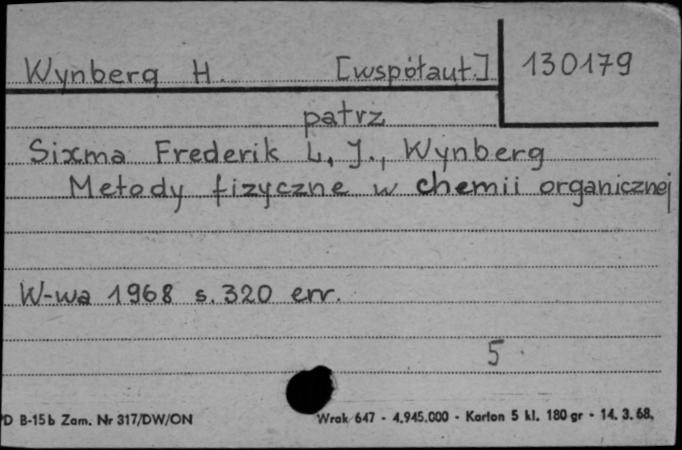 Wynberg H. [współaut.] 130179
patrz
Sixma Frederik L. J., Wynberg
Metody fizyczne w chemii organicznej
W-wa 1968 s. 320 err.
5
PD B-15b Zam. Nr 317/DW/ON Wrak 647 - 4.945.000 - Karton 5 kl. 180 gr - 14. 3. 68.